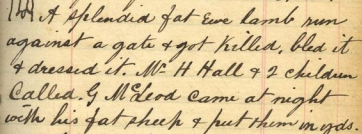 14 A splendid fat Ewe lamb run
against a gate & got Killed, bled it
& dressed it. Mr H Hall & 2 children
Called. G McLeod came at night
with his fat sheep & put them in yds.